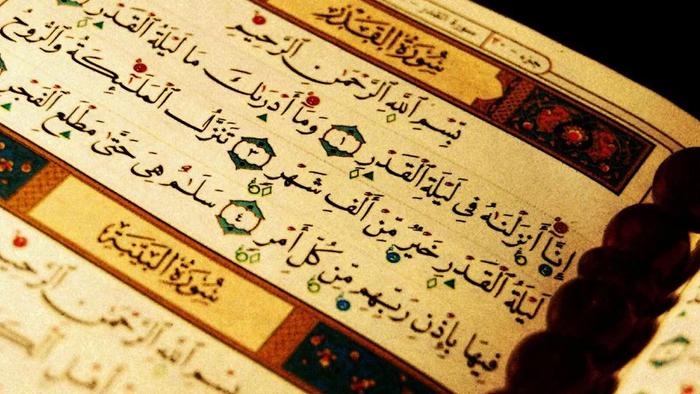 جزء - ٣٠ سورة القدر
سُورَةُ القَدْرِ
بِسْمِ ٱللَّهِ ٱلرَّحْمَٰنِ ٱلرَّحِيمِ
إِنَّآ أَنزَلْنَٰهُ فِى لَيْلَةِ ٱلْقَدْرِ ١ وَمَآ أَدْرَىٰكَ مَا لَيْلَةُ ٱلْقَدْرِ
لَيْلَةُ ٱلْقَدْرِ خَيْرٌ مِّنْ أَلْفِ شَهْرٍ ٣ تَنَزَّلُ ٱلْمَلَٰٓئِكَةُ وَٱلرُّوحُ
فِيهَا بِإِذْنِ رَبِّهِم مِّن كُلِّ أَمْرٍ ٤ سَلَٰمٌ هِىَ حَتَّىٰ مَطْلَعِ ٱلْفَجْرِ
سُورَةُ البَيِّنَةِ
بِسْمِ ٱللَّهِ ٱلرَّحْمَٰنِ ٱلرَّحِيمِ
أَهْلِ